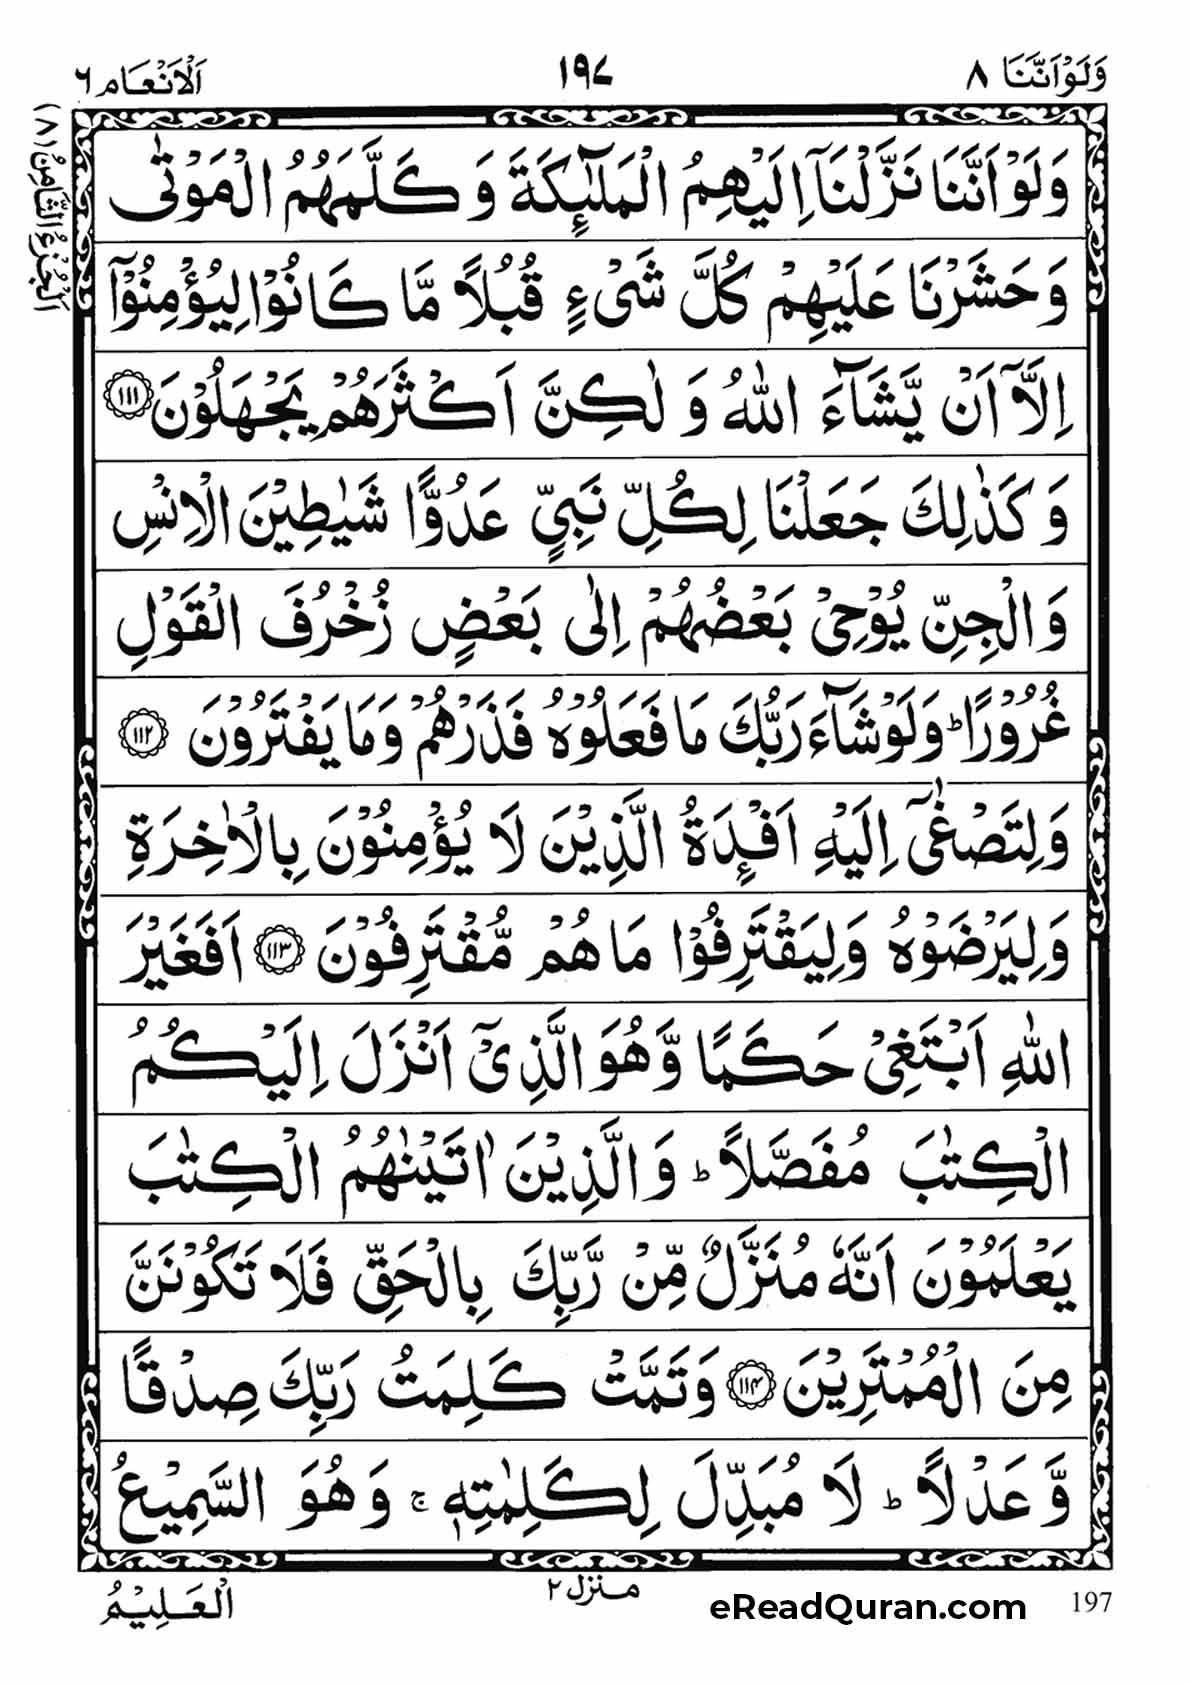 وَلَوْاَنَّنَا ٨
١٩٧
اَلْاَنْعَام ٦
اَلْجُزْءُ الثَّامِنُ (٨)
وَلَوْ اَنَّنَا نَزَّلْنَاۤ اِلَيْهِمُ الْمَلٰٓئِكَةَ وَ كَلَّمَهُمُ الْمَوْتٰى
وَ حَشَرْنَا عَلَيْهِمْ كُلَّ شَىْءٍ قُبُلًا مَّا كَانُوْا لِيُؤْمِنُوْۤا
اِلَّاۤ اَنْ يَّشَآءَ اللّٰهُ وَ لٰكِنَّ اَكْثَرَهُمْ يَجْهَلُوْنَ ١١١
وَ كَذٰلِكَ جَعَلْنَا لِكُلِّ نَبِيٍّ عَدُوًّا شَيٰطِيْنَ الْاِنْسِ
وَالْجِنِّ يُوْحِىْ بَعْضُهُمْ اِلٰى بَعْضٍ زُخْرُفَ الْقَوْلِ
غُرُوْرًا ؕ وَلَوْ شَآءَ رَبُّكَ مَا فَعَلُوْهُ فَذَرْهُمْ وَمَا يَفْتَرُوْنَ ١١٢
وَلِتَصْغٰۤى اِلَيْهِ اَفْـِٕدَةُ الَّذِيْنَ لَا يُؤْمِنُوْنَ بِالْاٰخِرَةِ
وَلِيَرْضَوْهُ وَلِيَقْتَرِفُوْا مَا هُمْ مُّقْتَرِفُوْنَ ١١٣ اَفَغَيْرَ
اللّٰهِ اَبْتَغِىْ حَكَمًا وَّهُوَ الَّذِىْۤ اَنْزَلَ اِلَيْكُمُ
الْكِتٰبَ مُفَصَّلًا ؕ وَالَّذِيْنَ اٰتَيْنٰهُمُ الْكِتٰبَ
يَعْلَمُوْنَ اَنَّهٗ مُنَزَّلٌ مِّنْ رَّبِّكَ بِالْحَقِّ فَلَا تَكُوْنَنَّ
مِنَ الْمُمْتَرِيْنَ ١١٤ وَتَمَّتْ كَلِمَتُ رَبِّكَ صِدْقًا
وَّ عَدْلًا ؕ لَا مُبَدِّلَ لِكَلِمٰتِهٖ ۚ وَ هُوَ السَّمِيْعُ
الْعَلِيْمُ
منزل ٢
eReadQuran.com
197